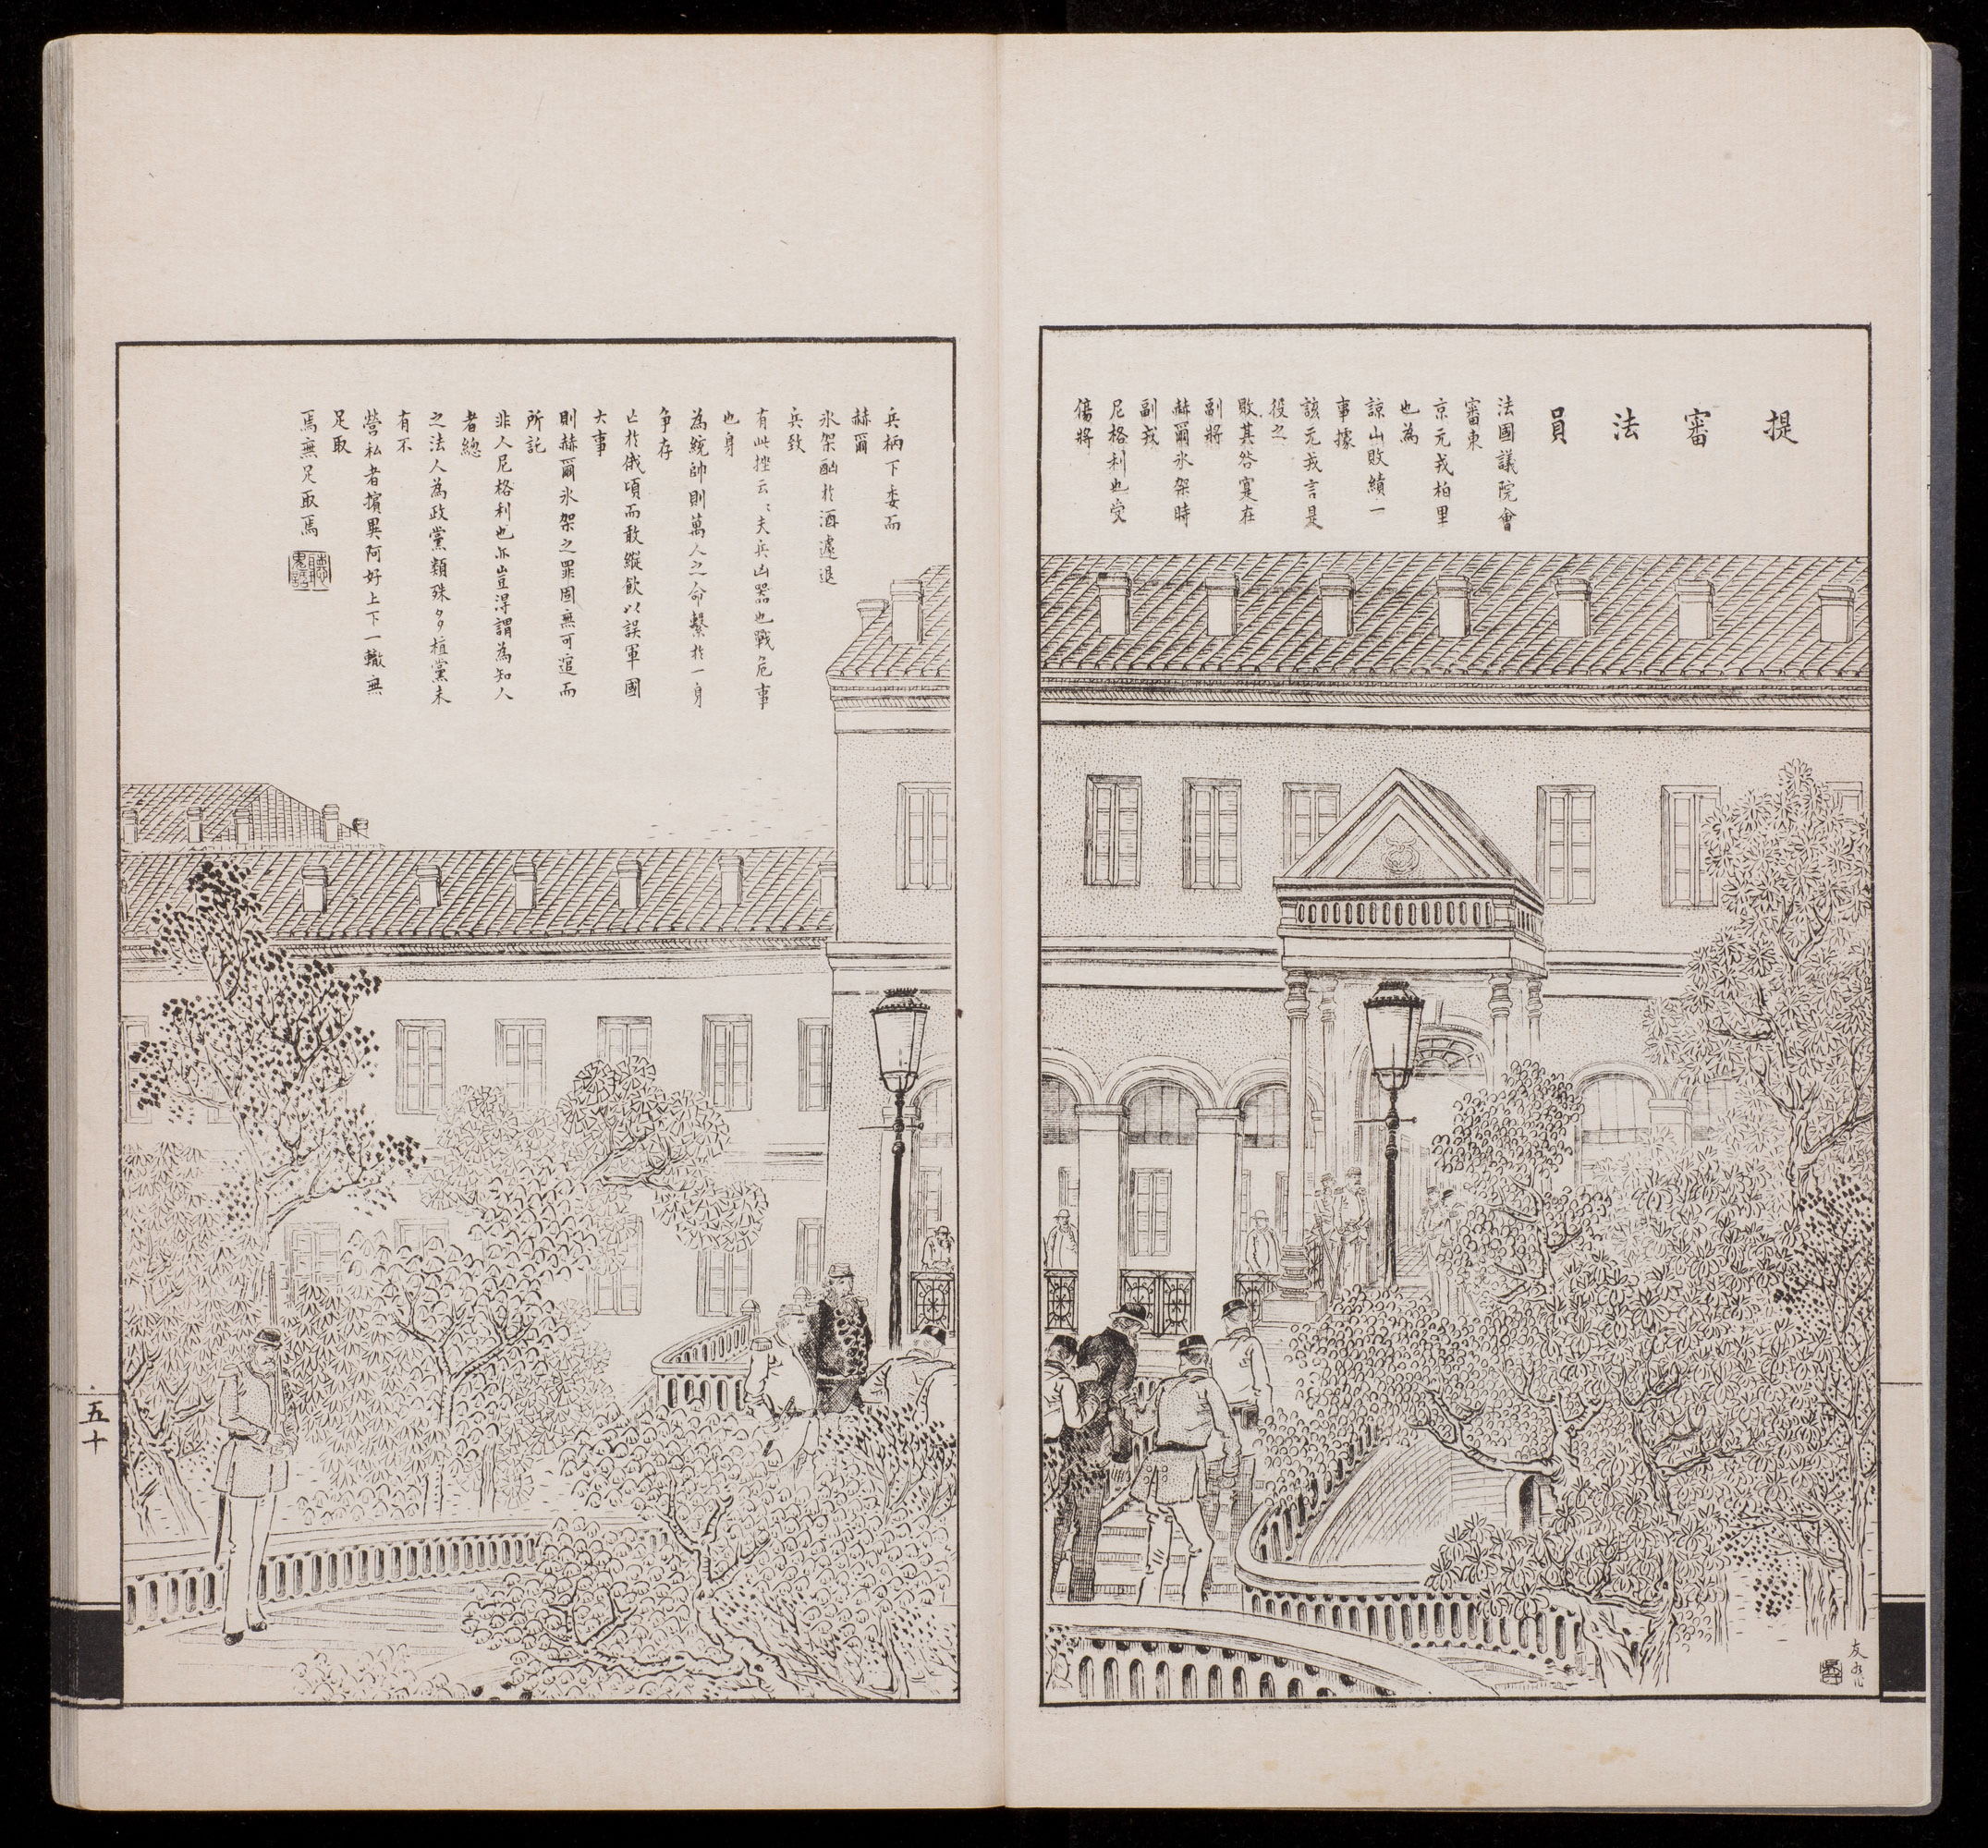 提審法員
法國議院會
審東
京元戎柏里
也為
諒山敗績一
事據
該元戎言是
役之
敗其咎寔在
副將
赫爾氷架時
副戎
尼格利也受
傷將
兵柄下委而
赫爾
氷架酗於酒遽退
兵致
有此挫云〻夫兵凶器也戰危事
也身
為統帥則萬人之命繫於一身
爭存
亡於俄頃而敢縱飲以誤軍國
大事
則赫爾氷架之罪固無可逭而
所託
非人尼格利也亦豈得謂為知人
者總
之法人為政黨類殊多植黨未
有不
營私者擯異阿好上下一轍無
足取
焉無足取焉
友如
五十